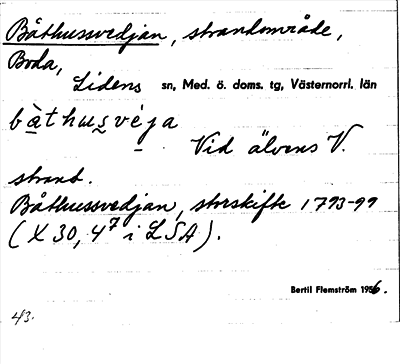 Båthussvedjan, strandområde,
Boda,
Lidens sn, Med. ö. doms. tg, Västernorrl. län
bàthusvéja
Vid älvens V.
strand.
Båthussvedjan, storskifte 1793-99
(X 30, 4⁷ i LSA).
Bertil Flemström 1956.
43.